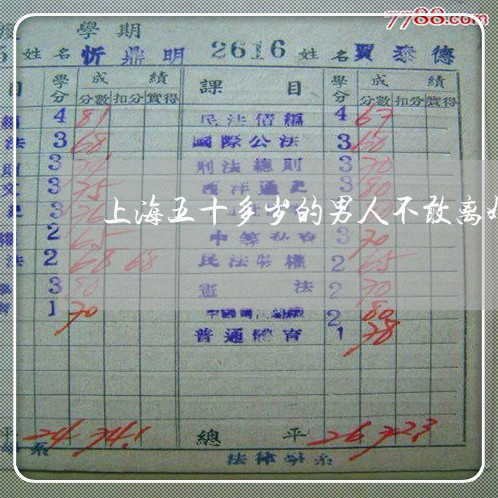 7788.com
學期
姓名 忻鼎明 2616 姓名 賈泰德
目 學分 成績 課目 學分 成績
分數 扣分 實得 分數 扣分 實得
4 81 民法債編 4 67
法 3 68 國際公法 3 60
3 刑法總則 3 70
3 75 西洋通史 3 80
3
上海五十多岁的男人不敢离
2 65 3 70
法 2 68 68 民法物權 2 65
3 80 憲法 2 70
育 1 70 2 80
普通體育 1 78
平 24 74.1 總平 26 72.3
系 法律學系